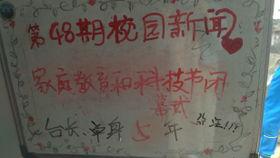 第48期校园新闻
家庭教育和科技节闭
幕式
台长:单身5年 急注!!!